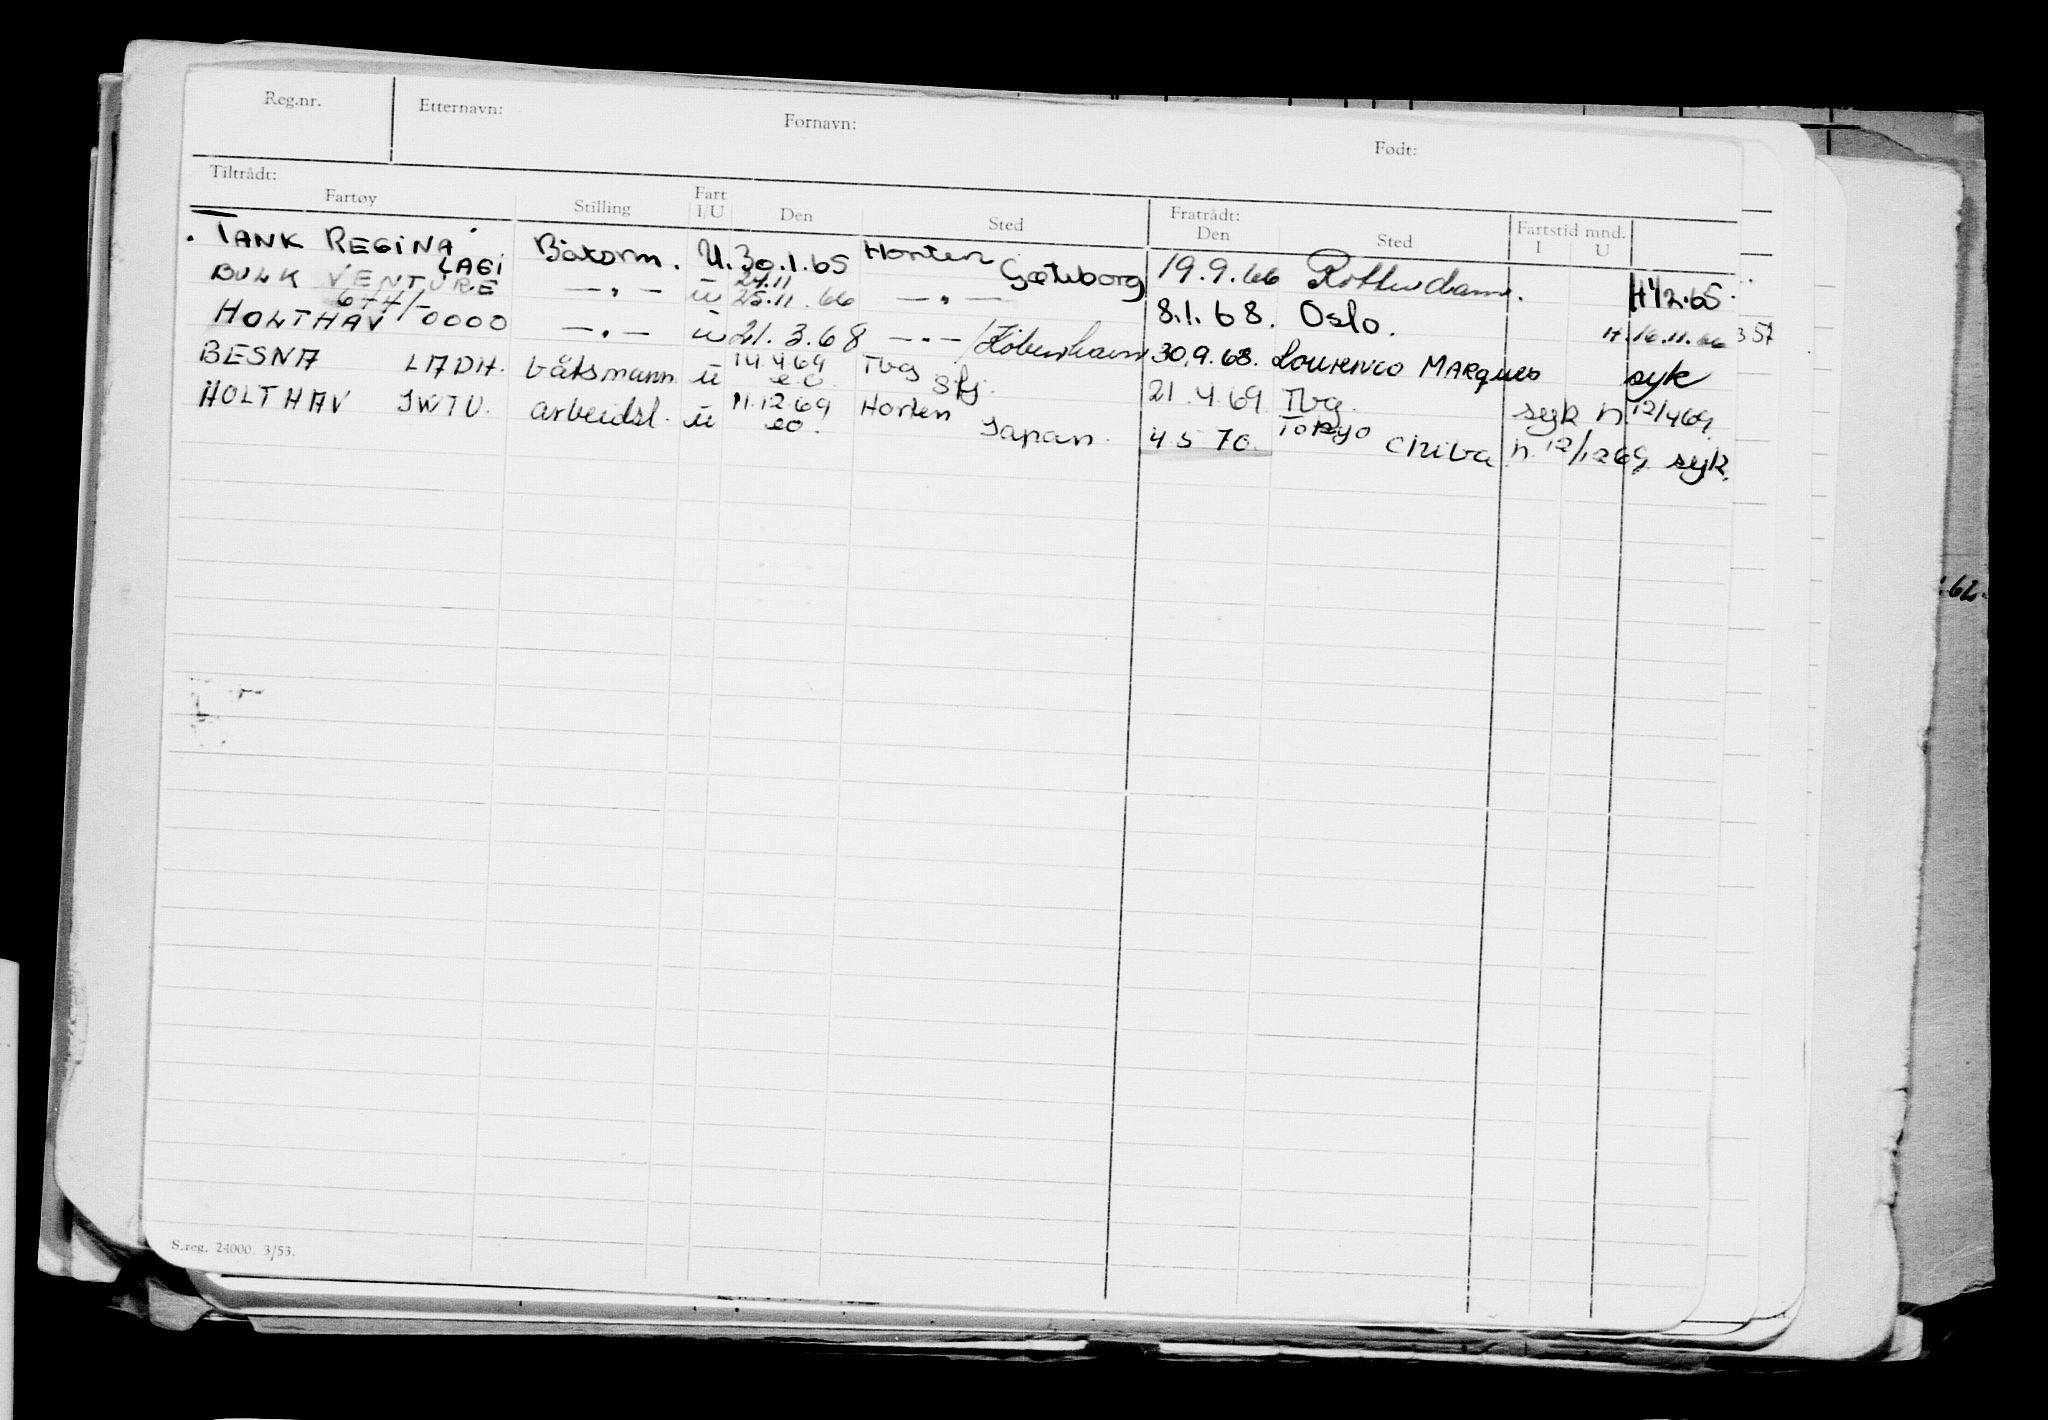 Reg.nr. Etternavn: Fornavn: Født:
Tiltrådt: Fratrådt: Fartstid mnd.
Fartøy Stilling Fart I/U Den Sted Den Sted I U
TANK REGINA LAGI Båtsm. U. 30.1.65 Horten Gøteborg 19.9.66 Rotterdam. 65
BULK VENTURE 6-4/- — " — u 24.11 25.11.66 — " — 8.1.68. Oslo. H. 16.11.66 357
HOLTHAV 0000 — " — u 21.3.68 — " — /København 30.9.68. Lourenco Marques syk
BESNA LADH. båtsmann u 14.4.69 e.o. Tbg Skj. 21.4.69 Tbg. syk n. 12/4 69.
HOLTHAV JWTU. arbeidsl. u 11.12.69 eo. Horten Japan. 4 5 70. Tokyo Chiba n. 12/12 69. syk.
.62.
S.reg. 24000. 3/53.